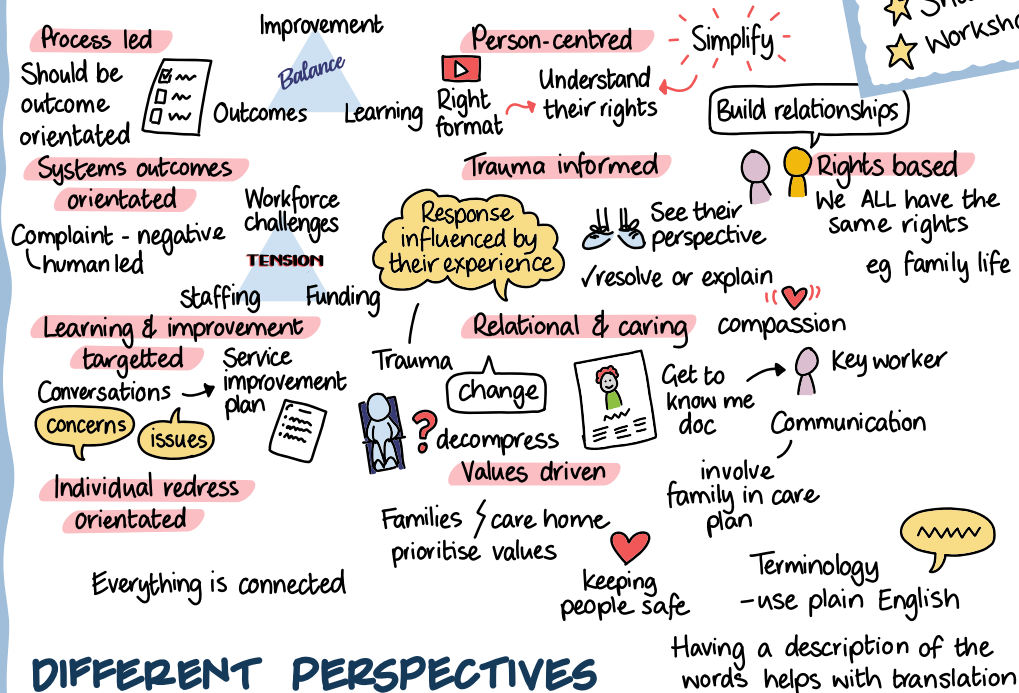 Process led
Should be
outcome
orientated
Improvement
Balance
Outcomes
Learning
Person-centred
Simplify
Right
format
Understand
their rights
WorkSh
Build relationships
Systems outcomes
orientated
Complaint - negative
human led
Workforce
challenges
TENSION
Staffing
Funding
Response
influenced by
their experience
Trauma informed
See their
perspective
✓resolve or explain
Rights based
We ALL have the
same rights
eg family life
Learning & improvement
targetted
Conversations
concerns
issues
Service
improvement
plan
Trauma
change
?
decompress
Relational & caring
compassion
Get to
know me
doc
Key worker
Communication
involve
family in care
plan
Individual redress
orientated
Values driven
Families / care home
prioritise values
keeping
people safe
Everything is connected
Terminology
-use plain English
Having a description of the
words helps with translation
DIFFERENT PERSPECTIVES